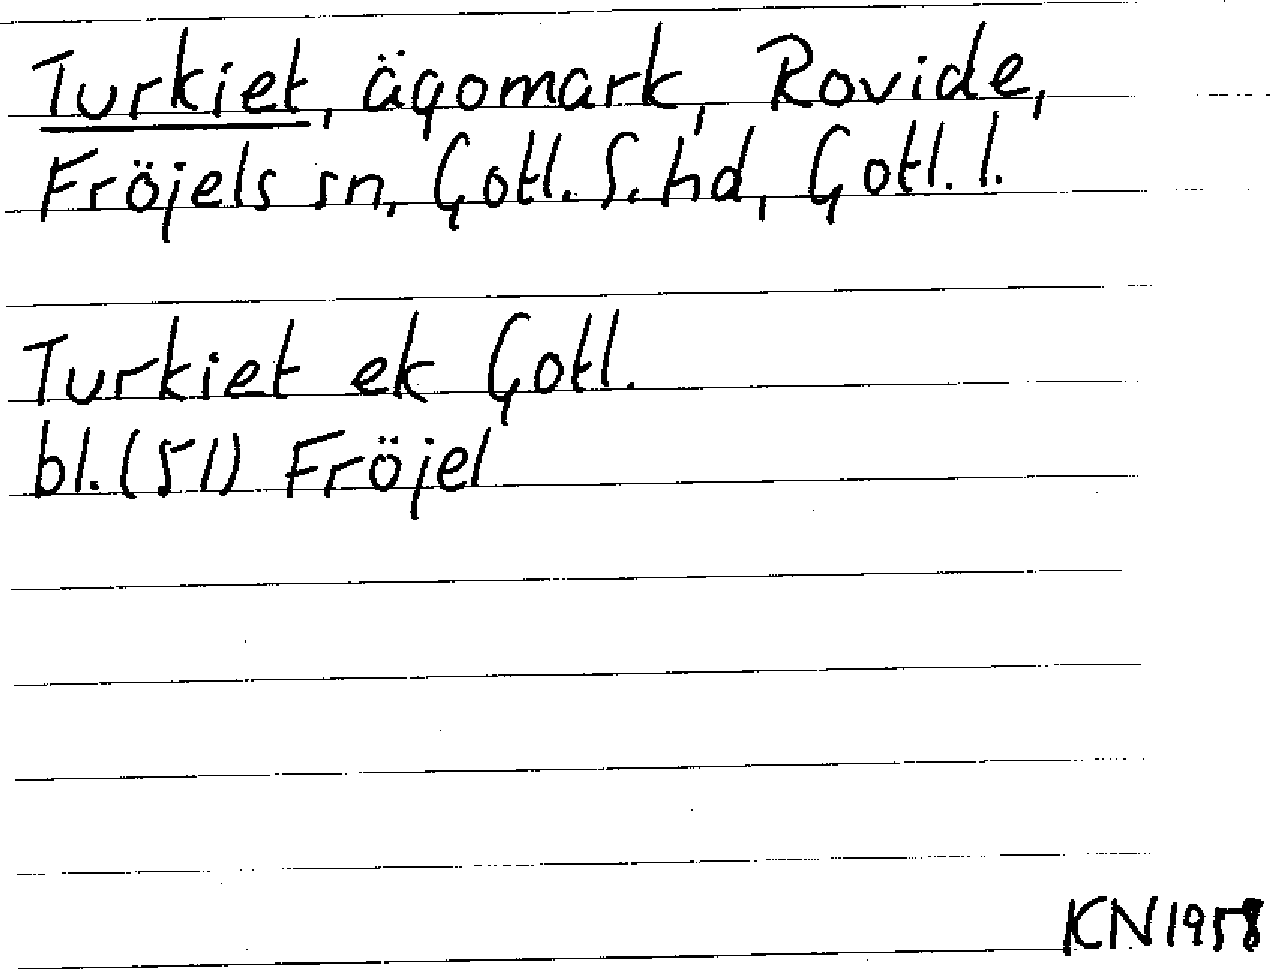 Turkiet, ägomark, Rovide,
Fröjels sn, Gotl. S. hd, Gotl. l.
Turkiet ek Gotl.
bl. (51) Fröjel
KN 1958